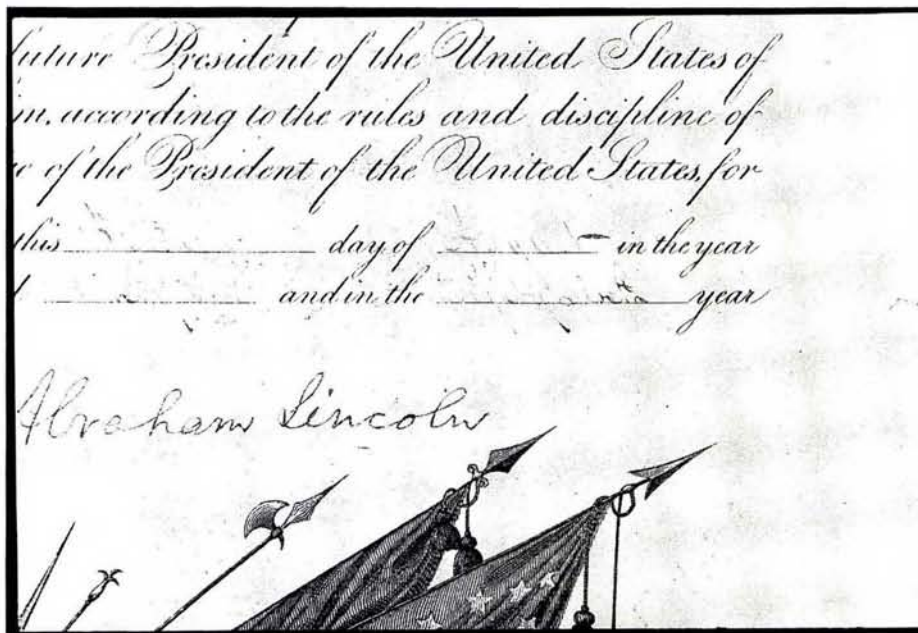 future President of the United States of
m. according to the rules and discipline of
e of the President of the United States, for
this day of in the year
and in the year
Abraham Lincoln